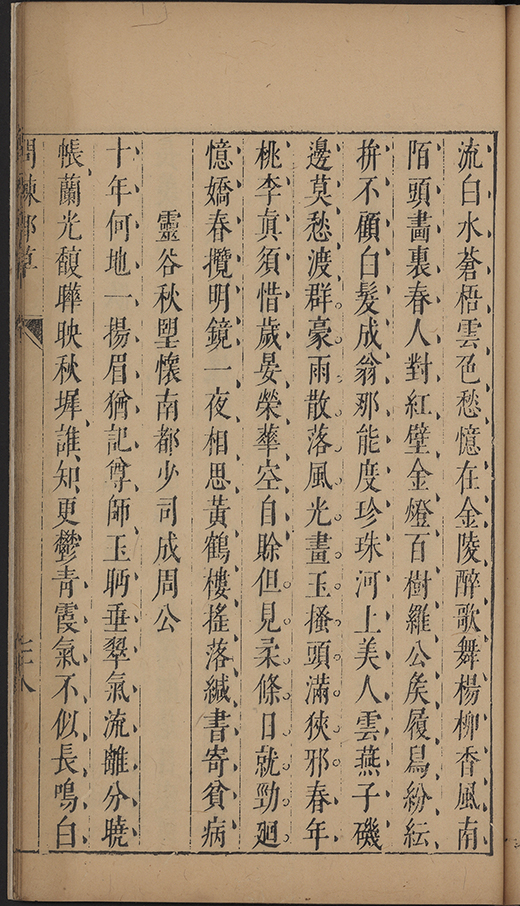 流白水蒼梧雲色愁憶在金陵醉歌舞楊柳香風南
陌頭畫裏春人對紅壁金燈百樹羅公矦履舄紛紜
拚不顧白髮成翁那能度珍珠河上美人雲燕子磯
邊莫愁渡群豪雨散落風光畫玉搔頭滿狹邪春年
桃李真須惜歲晏榮華空自賒但見柔條日就勁廻
憶嬌春攬明鏡一夜相思黃鶴樓搖落緘書寄貧病
靈谷秋朢懷南都少司成周公
十年何地一揚眉猶記尊師玉眄垂翠氣流離分曉
帳蘭光馥曄映秋墀誰知更鬱青霞氣不似長鳴白
問棘郵草
二十八